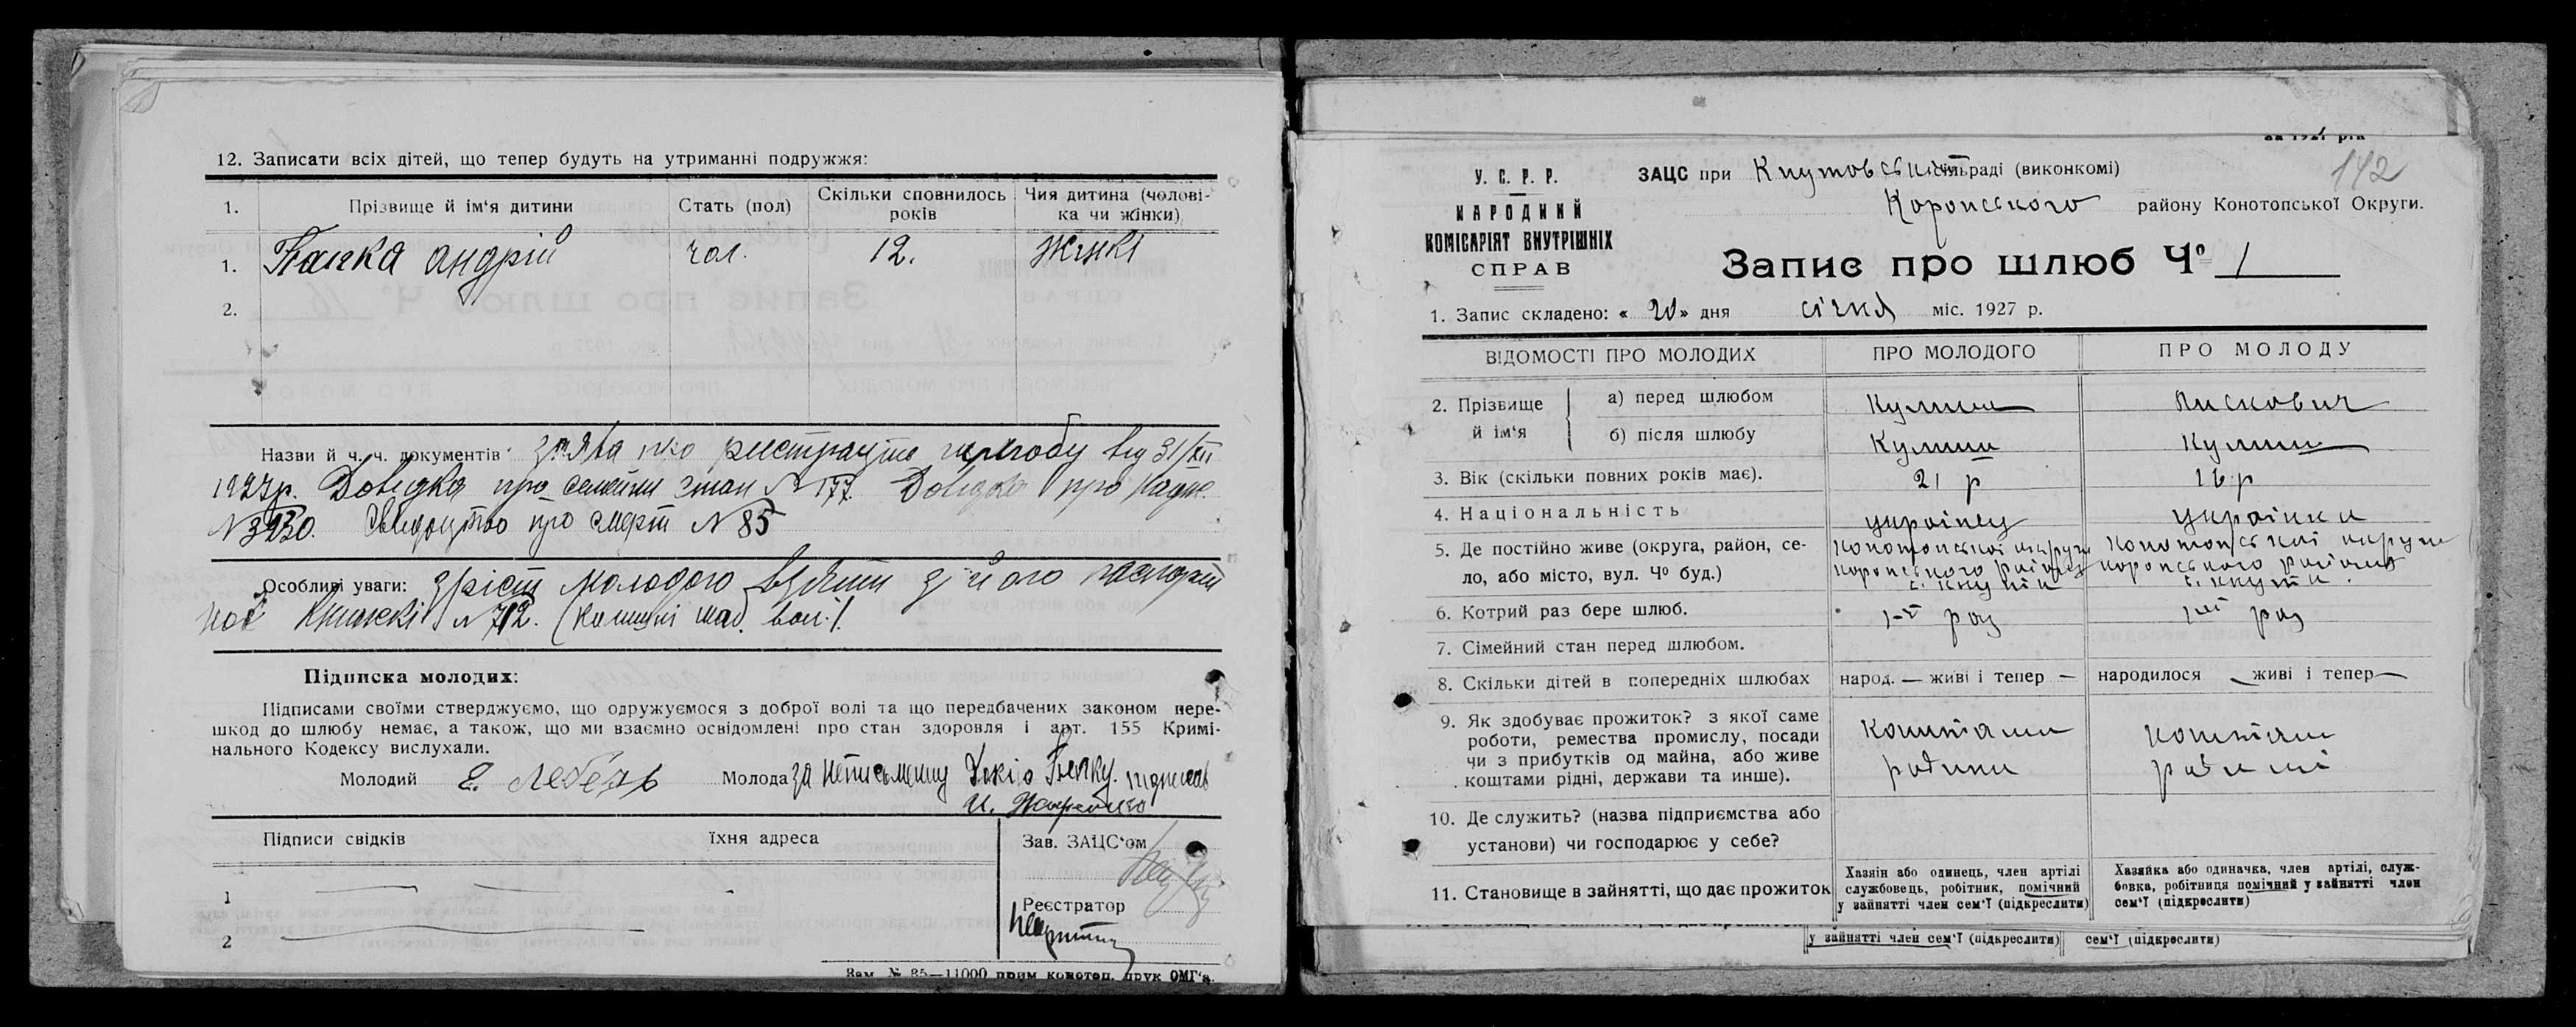 12. Записати всіх дітей, що тепер будуть на утриманні подружжя:
1. Прізвище й ім'я дитини Стать (пол) Скільки сповнилось років Чия дитина (чоловіка чи жінки)
1. Папка андрій чол. 12. жінкі
2.
Назви й ч. ч. документів заява про реєстрацію шлюбу від 31/XII
1927р. Довідка про семейни стан № 177. Довідка про
№3930. Свидоцтво про смерт № 85
Особливі уваги: зріст молодого взятии з його
книжкі № 712.
Підписка молодих:
Підписами своїми стверджуємо, що одружуємося з доброї волі та що передбачених законом пере-
шкод до шлюбу немає, а також, що ми взаємно освідомлені про стан здоровля і арт. 155 Кримі-
нального Кодексу вислухали.
Молодий Е. Лебедь Молода за неписьменну підписав
И.
Підписи свідків їхня адреса Зав. ЗАЦС'ом
1
Реєстратор
2
Зам. № 85—11000 прим. конотоп. друк ОМГ'а.
142
У. С. Р. Р. ЗАЦС при сільраді (виконкомі)
НАРОДНИЙ Коропського району Конотопської Округи.
КОМІСАРІЯТ ВНУТРІШНІХ
СПРАВ
Запис про шлюб Ч° 1
1. Запис складено: « 20 » дня січня міс. 1927 р.
ВІДОМОСТІ ПРО МОЛОДИХ ПРО МОЛОДОГО ПРО МОЛОДУ
2. Прізвище й ім'я а) перед шлюбом Кулиш Пискович
б) після шлюбу Кулиш Кулиш
3. Вік (скільки повних років має). 21 р 16 р
4. Національність українец українка
5. Де постійно живе (округа, район, се- Конотопської округи Конотопської округи
ло, або місто, вул. Ч° буд.) коропського району коропського району
6. Котрий раз бере шлюб. 1-й раз 1-й раз
7. Сімейний стан перед шлюбом.
8. Скільки дітей в попередніх шлюбах народ. — живі і тепер — народилося — живі і тепер —
9. Як здобуває прожиток? з якої саме
роботи, ремества промислу, посади
чи з прибутків од майна, або живе
коштами рідні, держави та инше).
коштами родини
коштами родини
10. Де служить? (назва підприємства або
установи) чи господарює у себе?
11. Становище в зайнятті, що дає прожиток
Хазяін або одинець, член артілі
службовець, робітник, помічний
у зайнятті член сем'ї (підкреслити)
Хазяйка або одиначка, член артілі, служ-
бовка, робітниця помічний у зайнятті член
сем'ї (підкреслити)
у зайнятті член сем'ї (підкреслити) сем'ї (підкреслити)